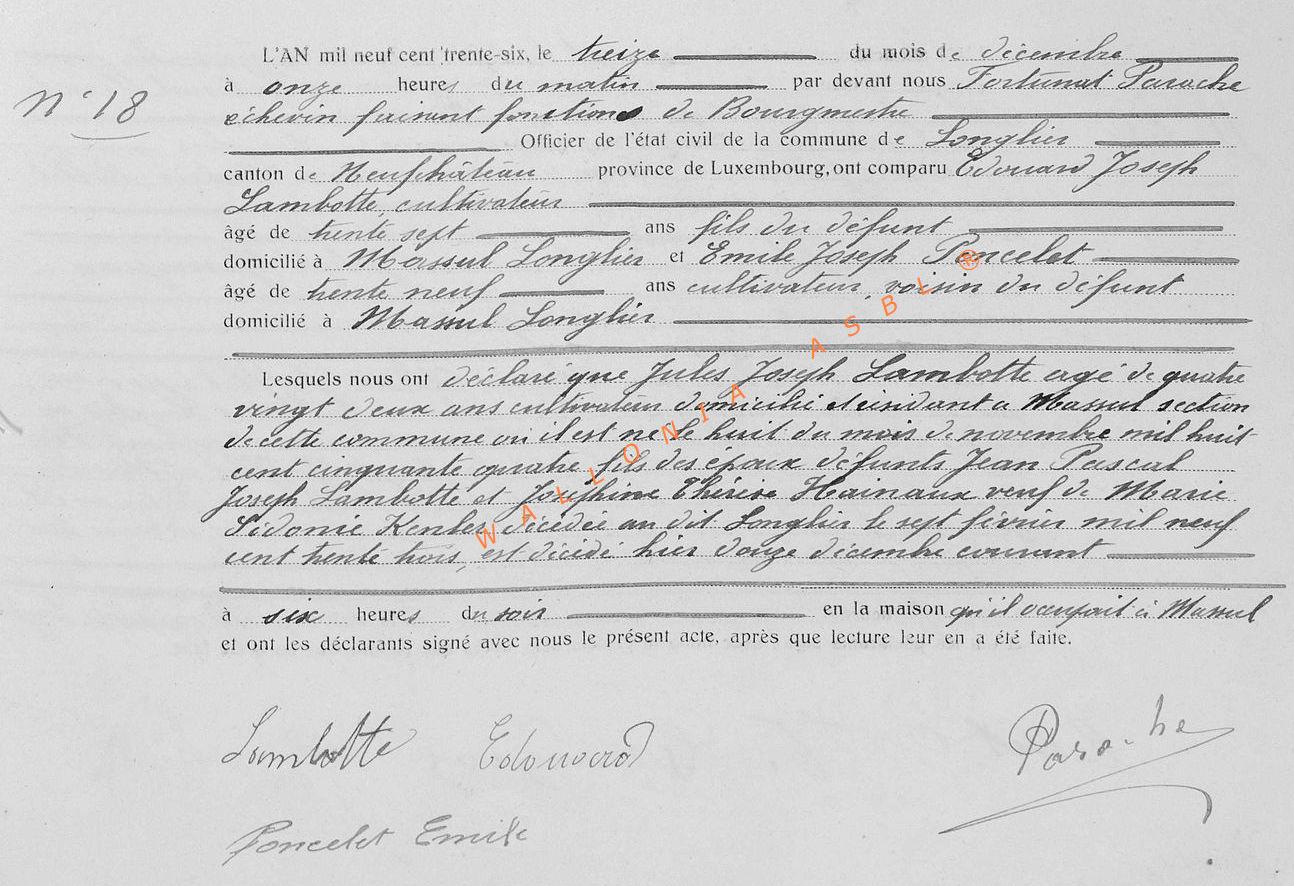 L'AN mil neuf cent trente-six, le treize du mois de décembre
à onze heures du matin par devant nous Fortunat Parache
N° 18
échevin faisant fonctions de Bourgmestre
Officier de l'état civil de la commune de Longlier
canton de Neufchâteau province de Luxembourg, ont comparu Edouard Joseph
Lambotte, cultivateur
âgé de trente sept ans fils du défunt
domicilié à Massul Longlier et Emile Joseph Poncelet
âgé de trente neuf ans cultivateur, voisin du défunt
domicilié à Massul Longlier
Lesquels nous ont déclaré que Jules Joseph Lambotte agé de quatre
vingt deux ans cultivateur domicilié et résidant à Massul section
de cette commune où il est né le huit du mois de novembre mil huit
cent cinquante quatre, fils des époux défunts Jean Pascal
Joseph Lambotte et Joséphine Thérèse Hainaux veuf de Marie
Sidonie Kenler, décédée au dit Longlier le sept février mil neuf
cent trente trois, est décédé hier douze décembre courant
à six heures du soir en la maison qu'il occupait à Massul
et ont les déclarants signé avec nous le présent acte, après que lecture leur en a été faite.
Lambotte Edouard
Parache
Poncelet Emile
WALLONIA ASBL ®